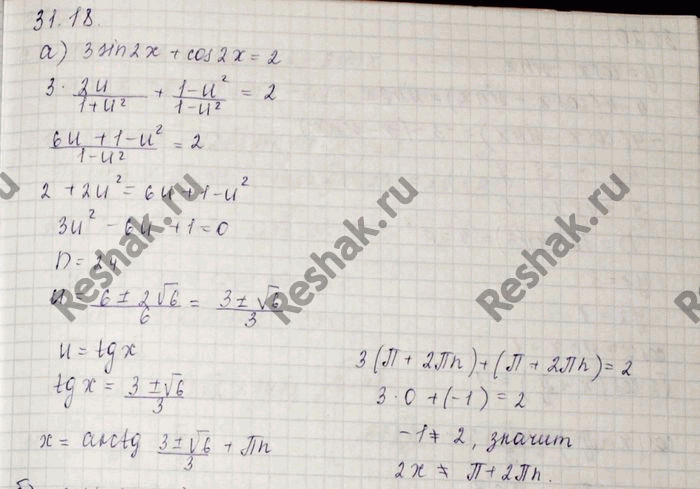 31.18.
а) 3 sin2x + cos2x = 2
3 · 2u/1+u² + 1-u²/1-u² = 2
6u + 1-u²/1-u² = 2
2 + 2u² = 6u + 1-u²
3u² - 6u + 1 = 0
D = 24
u = 6 ± 2√6/6 = 3 ± √6/3
u = tg x
tg x = 3 ± √6/3
x = arctg 3 ± √6/3 + Пn
3(П + 2Пn) + (П + 2Пn) = 2
3 · 0 + (-1) = 2
-1 ≠ 2, значит
2x ≠ П + 2Пn.
Reshak.ru
Reshak.ru